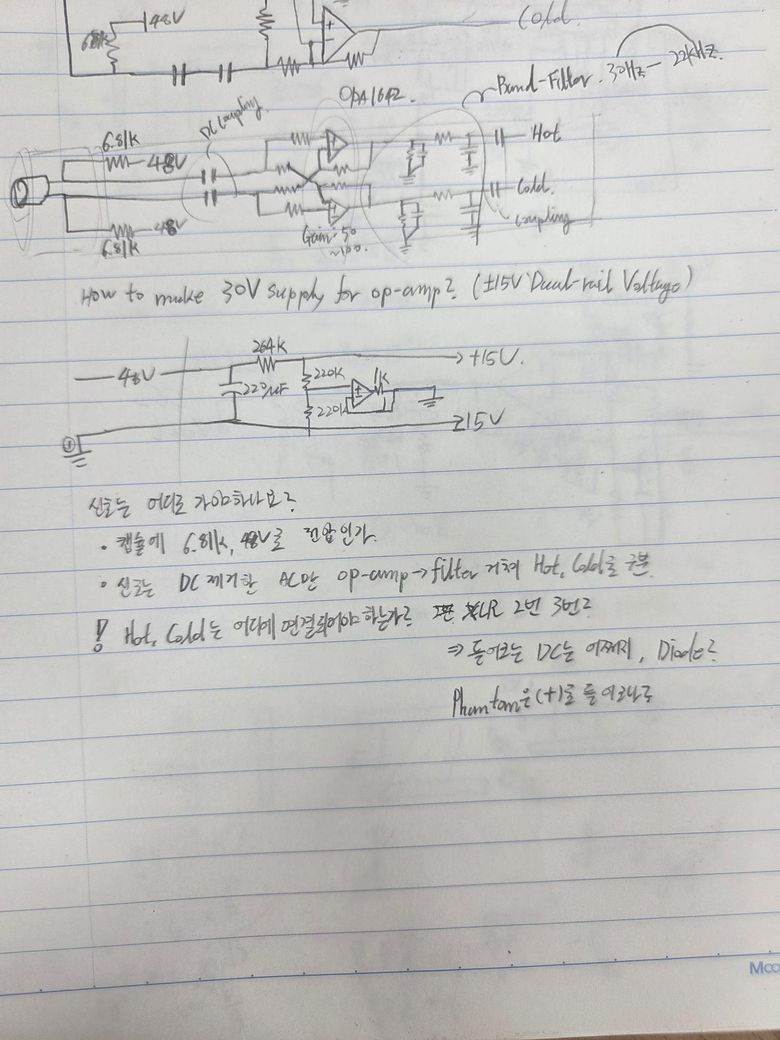 48V
6.81k
Cold.
OPA1642.
Band-Filter. 30Hz - 22kHz.
DC Coupling.
6.81K
48V
Hot
Cold.
Coupling
48V
6.81K
Gain: 50
~100.
How to make 30V supply for op-amp? (±15V Dual-rail Voltage)
264K
48V
+15V.
220K
1K
220µF
220K
15V
신호는 어디로 가야하나요?
• 캡슐에 6.81k, 48V로 전압인가.
• 신호는 DC 제거한 AC만 op-amp→filter 거쳐 Hot, Cold로 구분.
! Hot, Cold는 어디에 연결되어야 하는가? XLR 2번 3번?
⇒ 들어오는 DC는 어쩌지, Diode?
Phantom은 (+)로 들어오나?
Moo